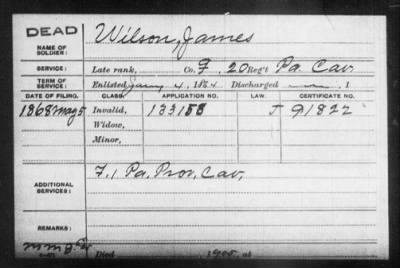 DEAD
NAME OF SOLDIER:
Wilson, James
SERVICE:
Late rank, Co. F, 20 Reg't Pa. Cav.
TERM OF SERVICE:
Enlisted Jany 4, 1864 Discharged , 1
DATE OF FILING. CLASS. APPLICATION NO. LAW. CERTIFICATE NO.
1868 May 5 Invalid, 133153 J 91822
Widow,
Minor,
ADDITIONAL SERVICES:
F. 1 Pa. Prov. Cav.
REMARKS:
Died 1905 at